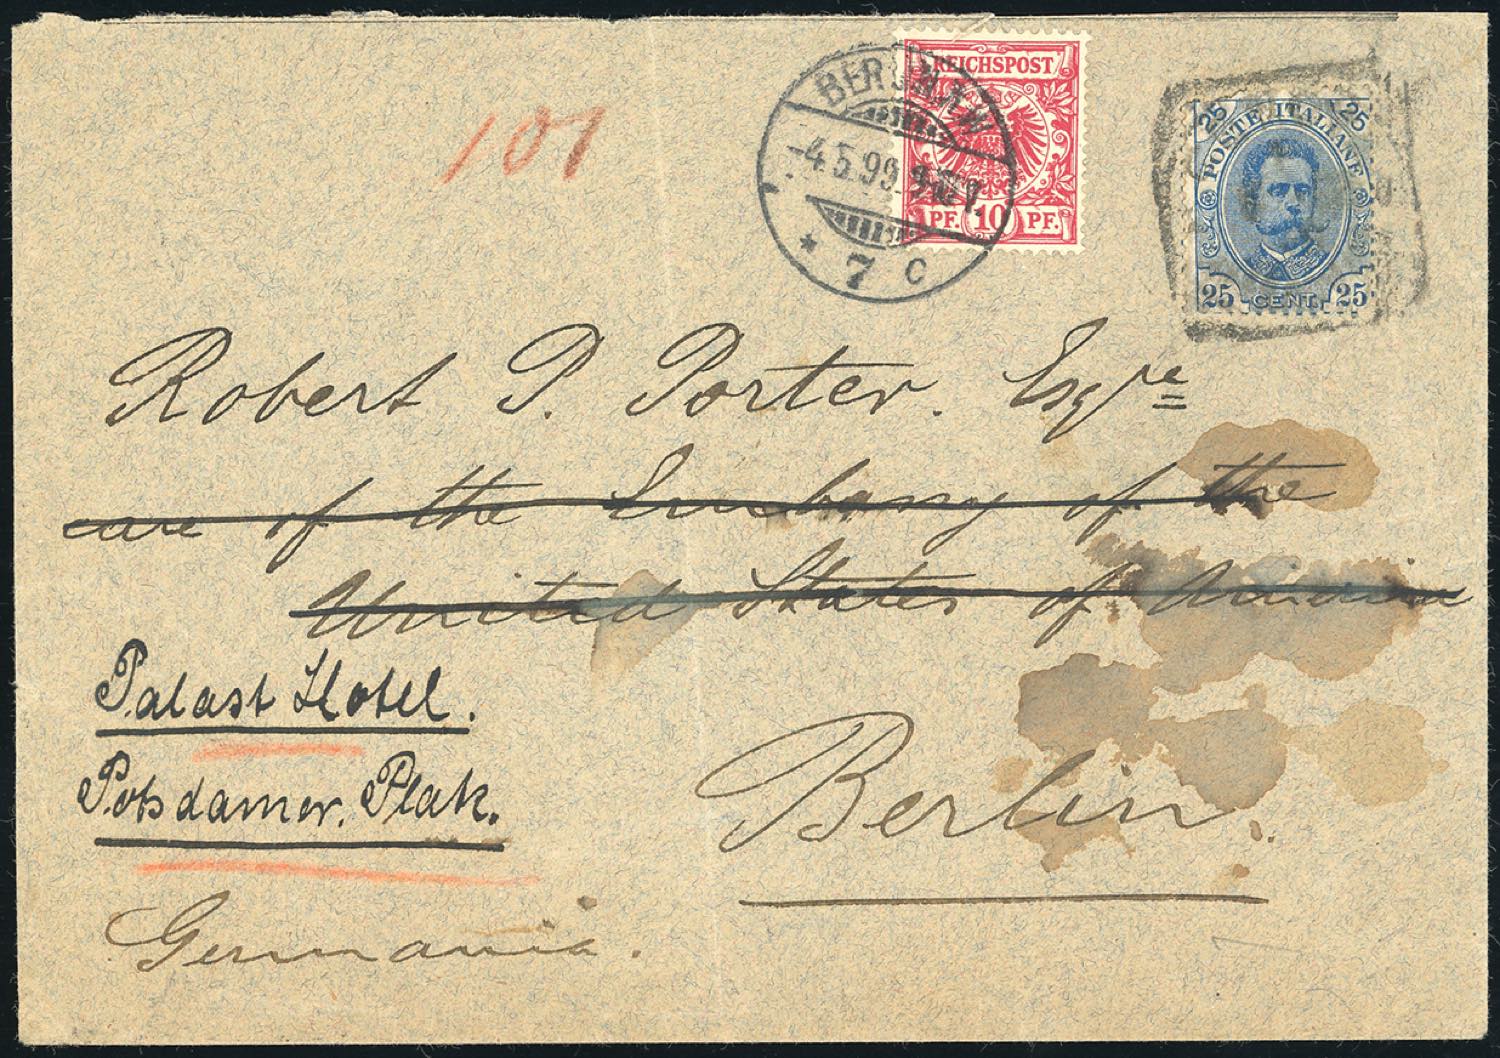 101
BERLIN.N.W.
-4.5.99. 9
* 7 c
REICHSPOST
PF. 10 PF.
25 25
POSTE ITALIANE
25 CENT. 25
Robert P. Porter. Esqre
care of the Embassy of the
United States of America
Palast Hotel.
Potsdamer. Platz.
Berlin.
Germania.